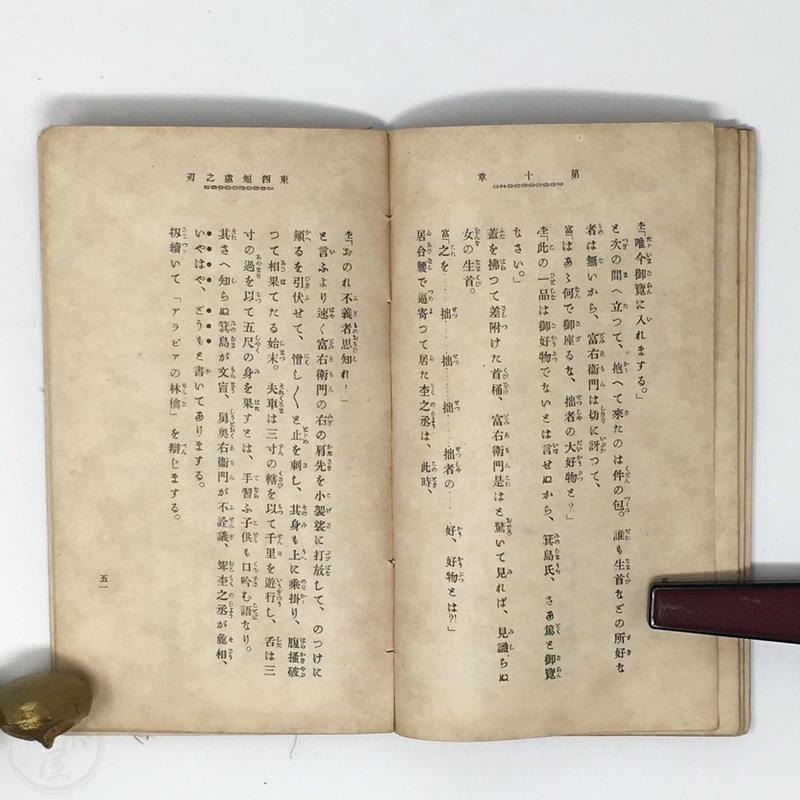 第十章
杢「唯今御覽に入れまする。」
と次の間へ立つて、抱へて來たのは件の包。誰も生首などの所好な
者は無いから、富右衛門は切に訝つて、
富「はあゝ何で御座るな、拙者の大好物と？」
杢「此の一品は御好物でないとは言せぬから、箕島氏、さあ篤と御覽
なさい。」
蓋を拂つて差附けた首桶、富右衛門是はと驚いて見れば、見識らぬ
女の生首。
富「之を……拙……拙……拙者の……好、好物とは？！」
居合腰で逼寄つて居た杢之丞は、此時、
東西短慮之刃
杢「おのれ不義者思知れ！」
と言ふより速く富右衛門の右の肩先を小袈裟に打放して、のつけに
顛るを引伏せて、憎し〱と止を刺し、其身も上に乘掛り、腹掻破
つて相果てたる始末。夫車は三寸の轄を以て千里を遊行し、舌は三
寸の過を以て五尺の身を果すとは、手習ふ子供も口吟む語なり。
其さへ知らぬ箕島が文盲、男奥右衛門が不詮議、婿杢之丞が麁相、
いやはや、どうもと書いてありまする。
扨續いて「アラビアの林檎」を辯じまする。
五一